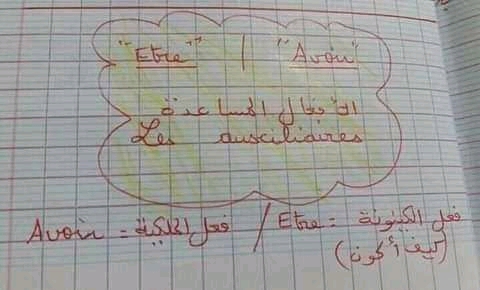 "Etre" / "Avoir"
الأفعال المساعدة
Les auxciliaires
Avoir = فعل الملكية / Etre = فعل الكينونة
(كيف أكون)